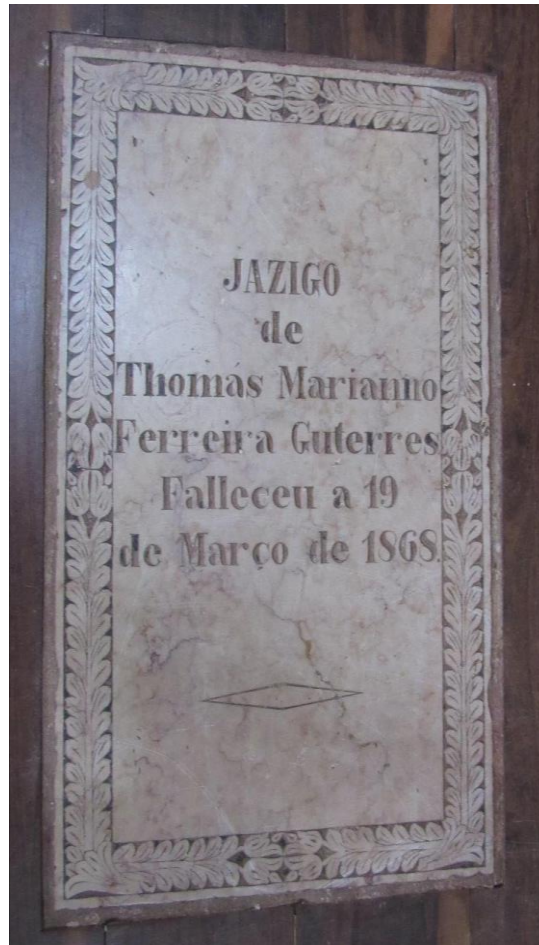 JAZIGO
de
Thomás Marianno
Ferreira Guterres
Falleceu a 19
de Março de 1868.